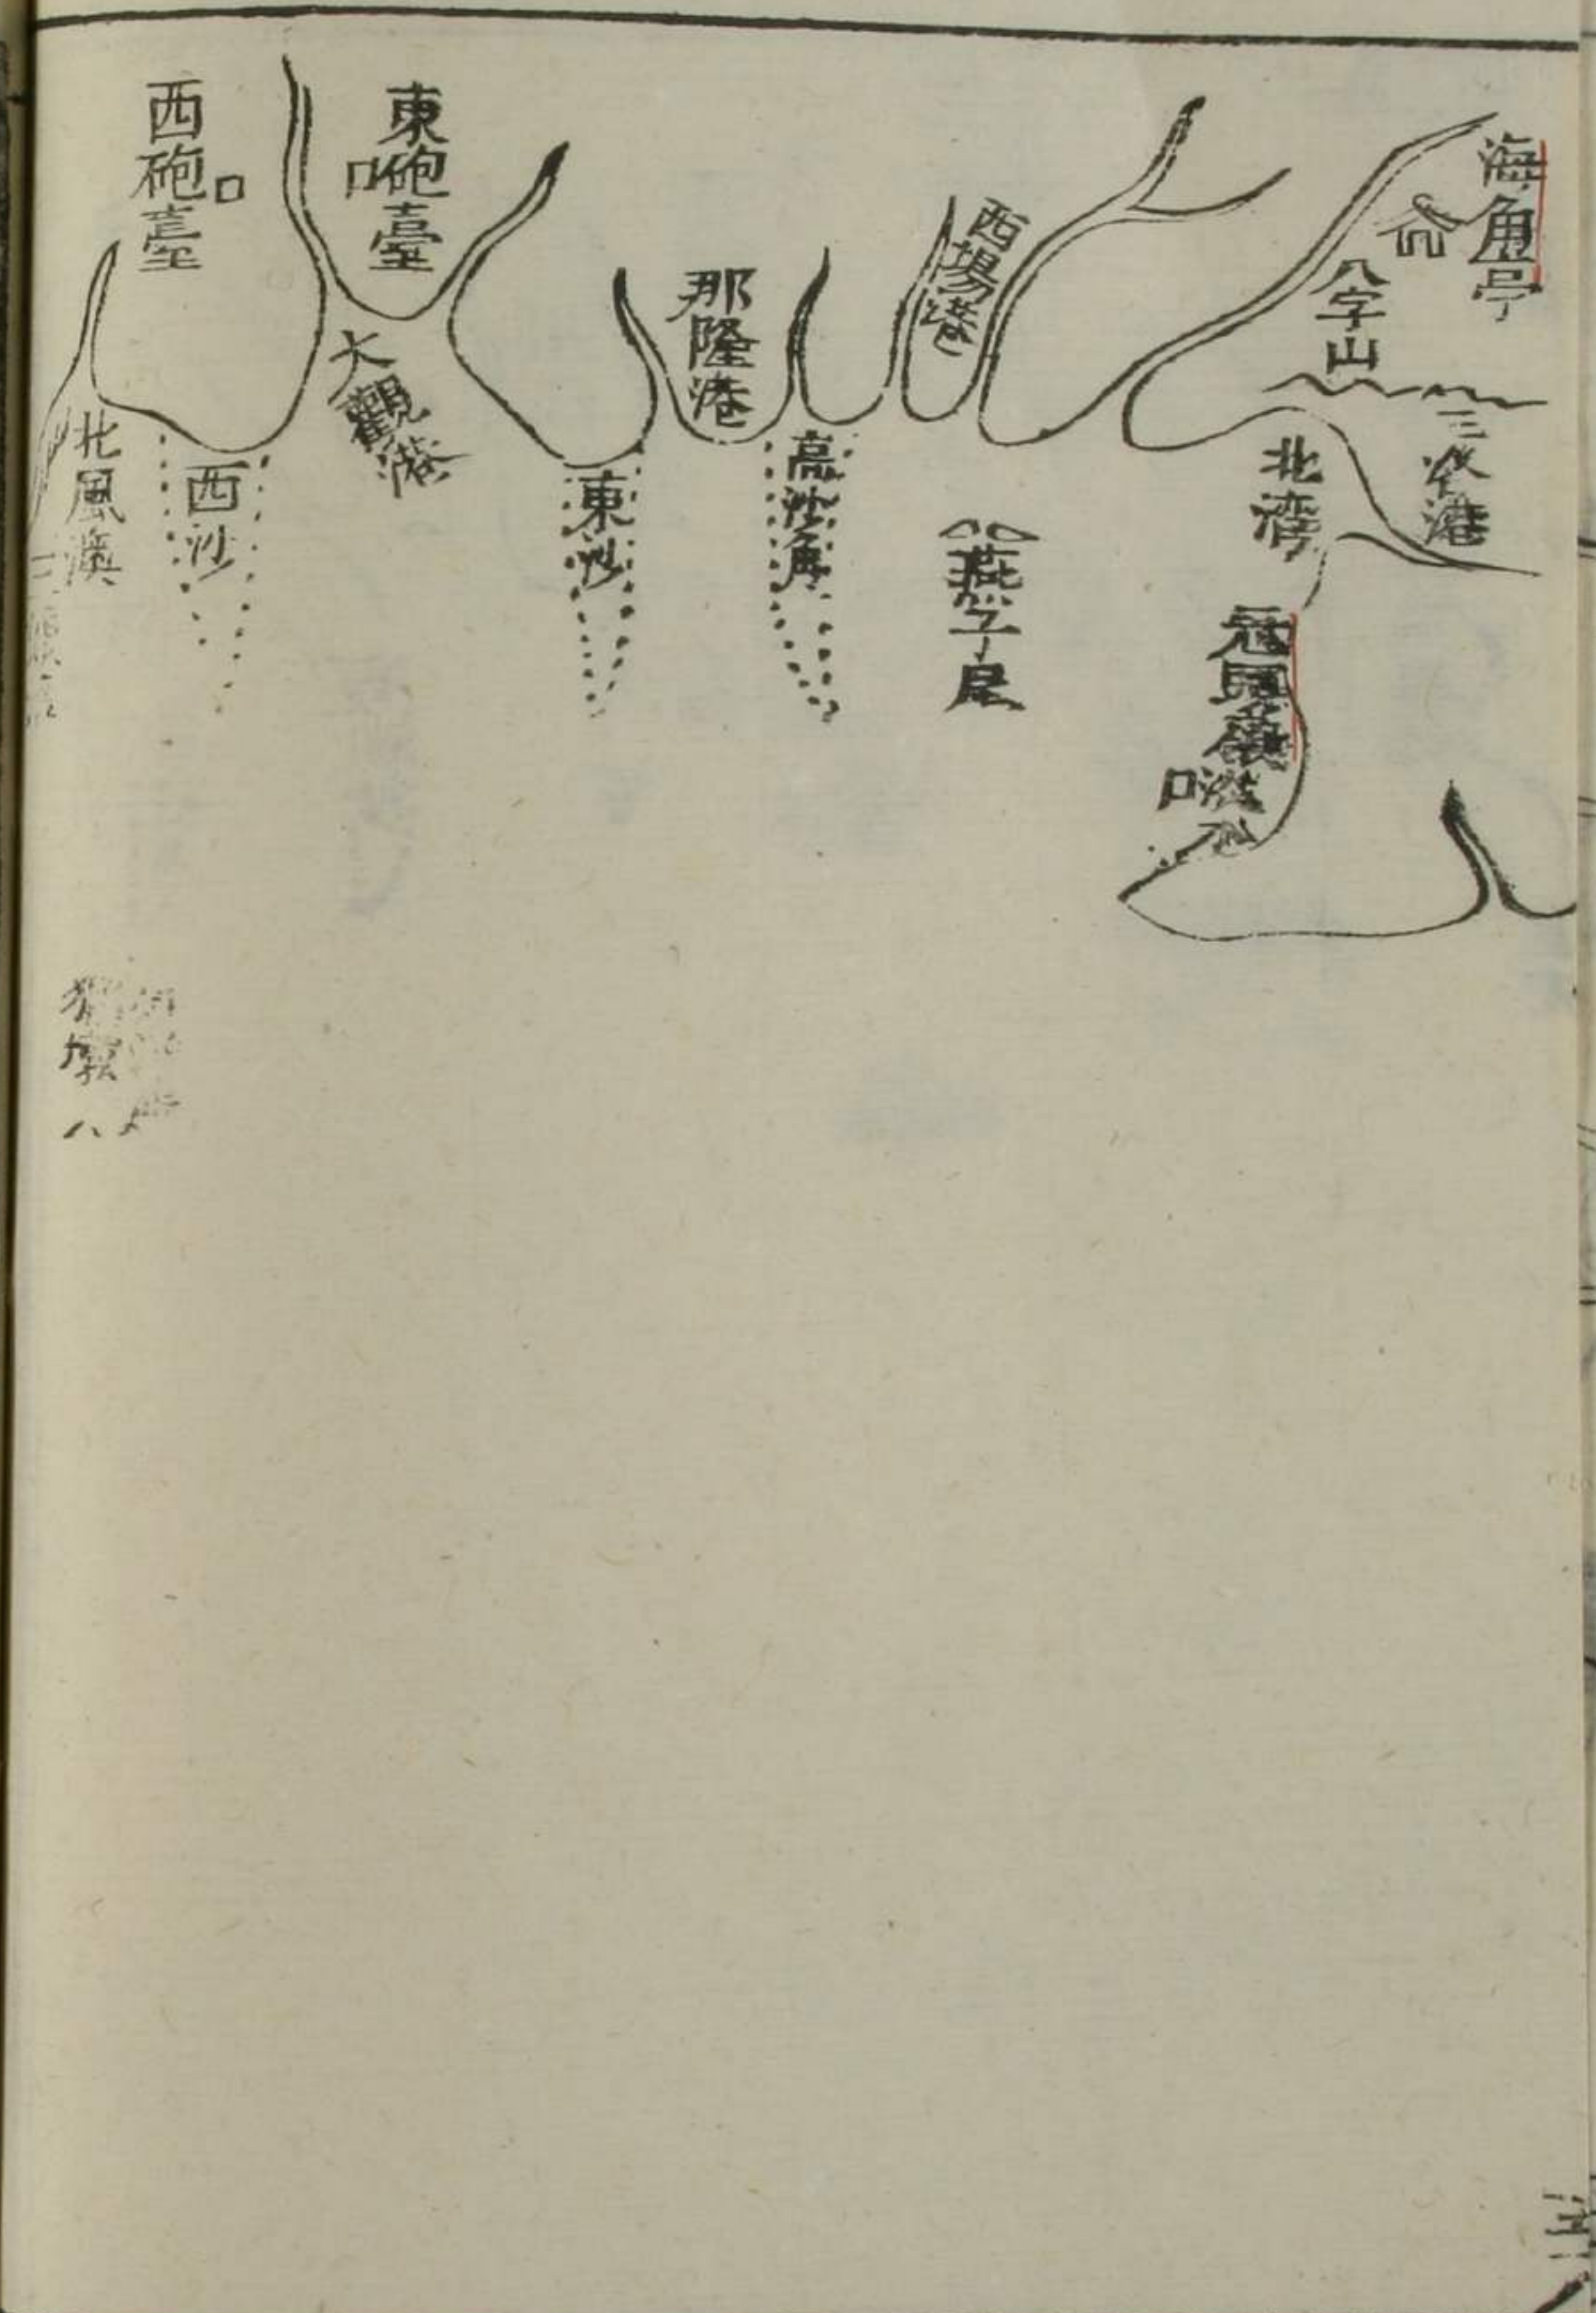 海角亭
八字山
三汊港
北灣
冠頭嶺
西場港
燕子尾
高沙角
那隆港
東沙
東砲臺
大觀港
西砲臺
西沙
北風澳